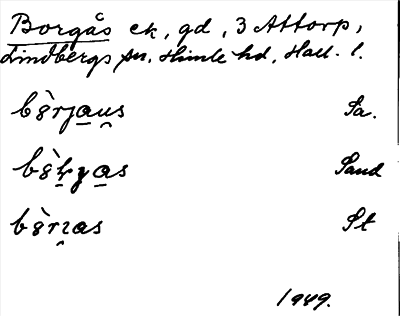 Borgås ek, gd, 3 Attorp,
Lindbergs sn. Himle hd, Hall. l.
bèrja̱u̯s Sa.
Sand
St
1949.